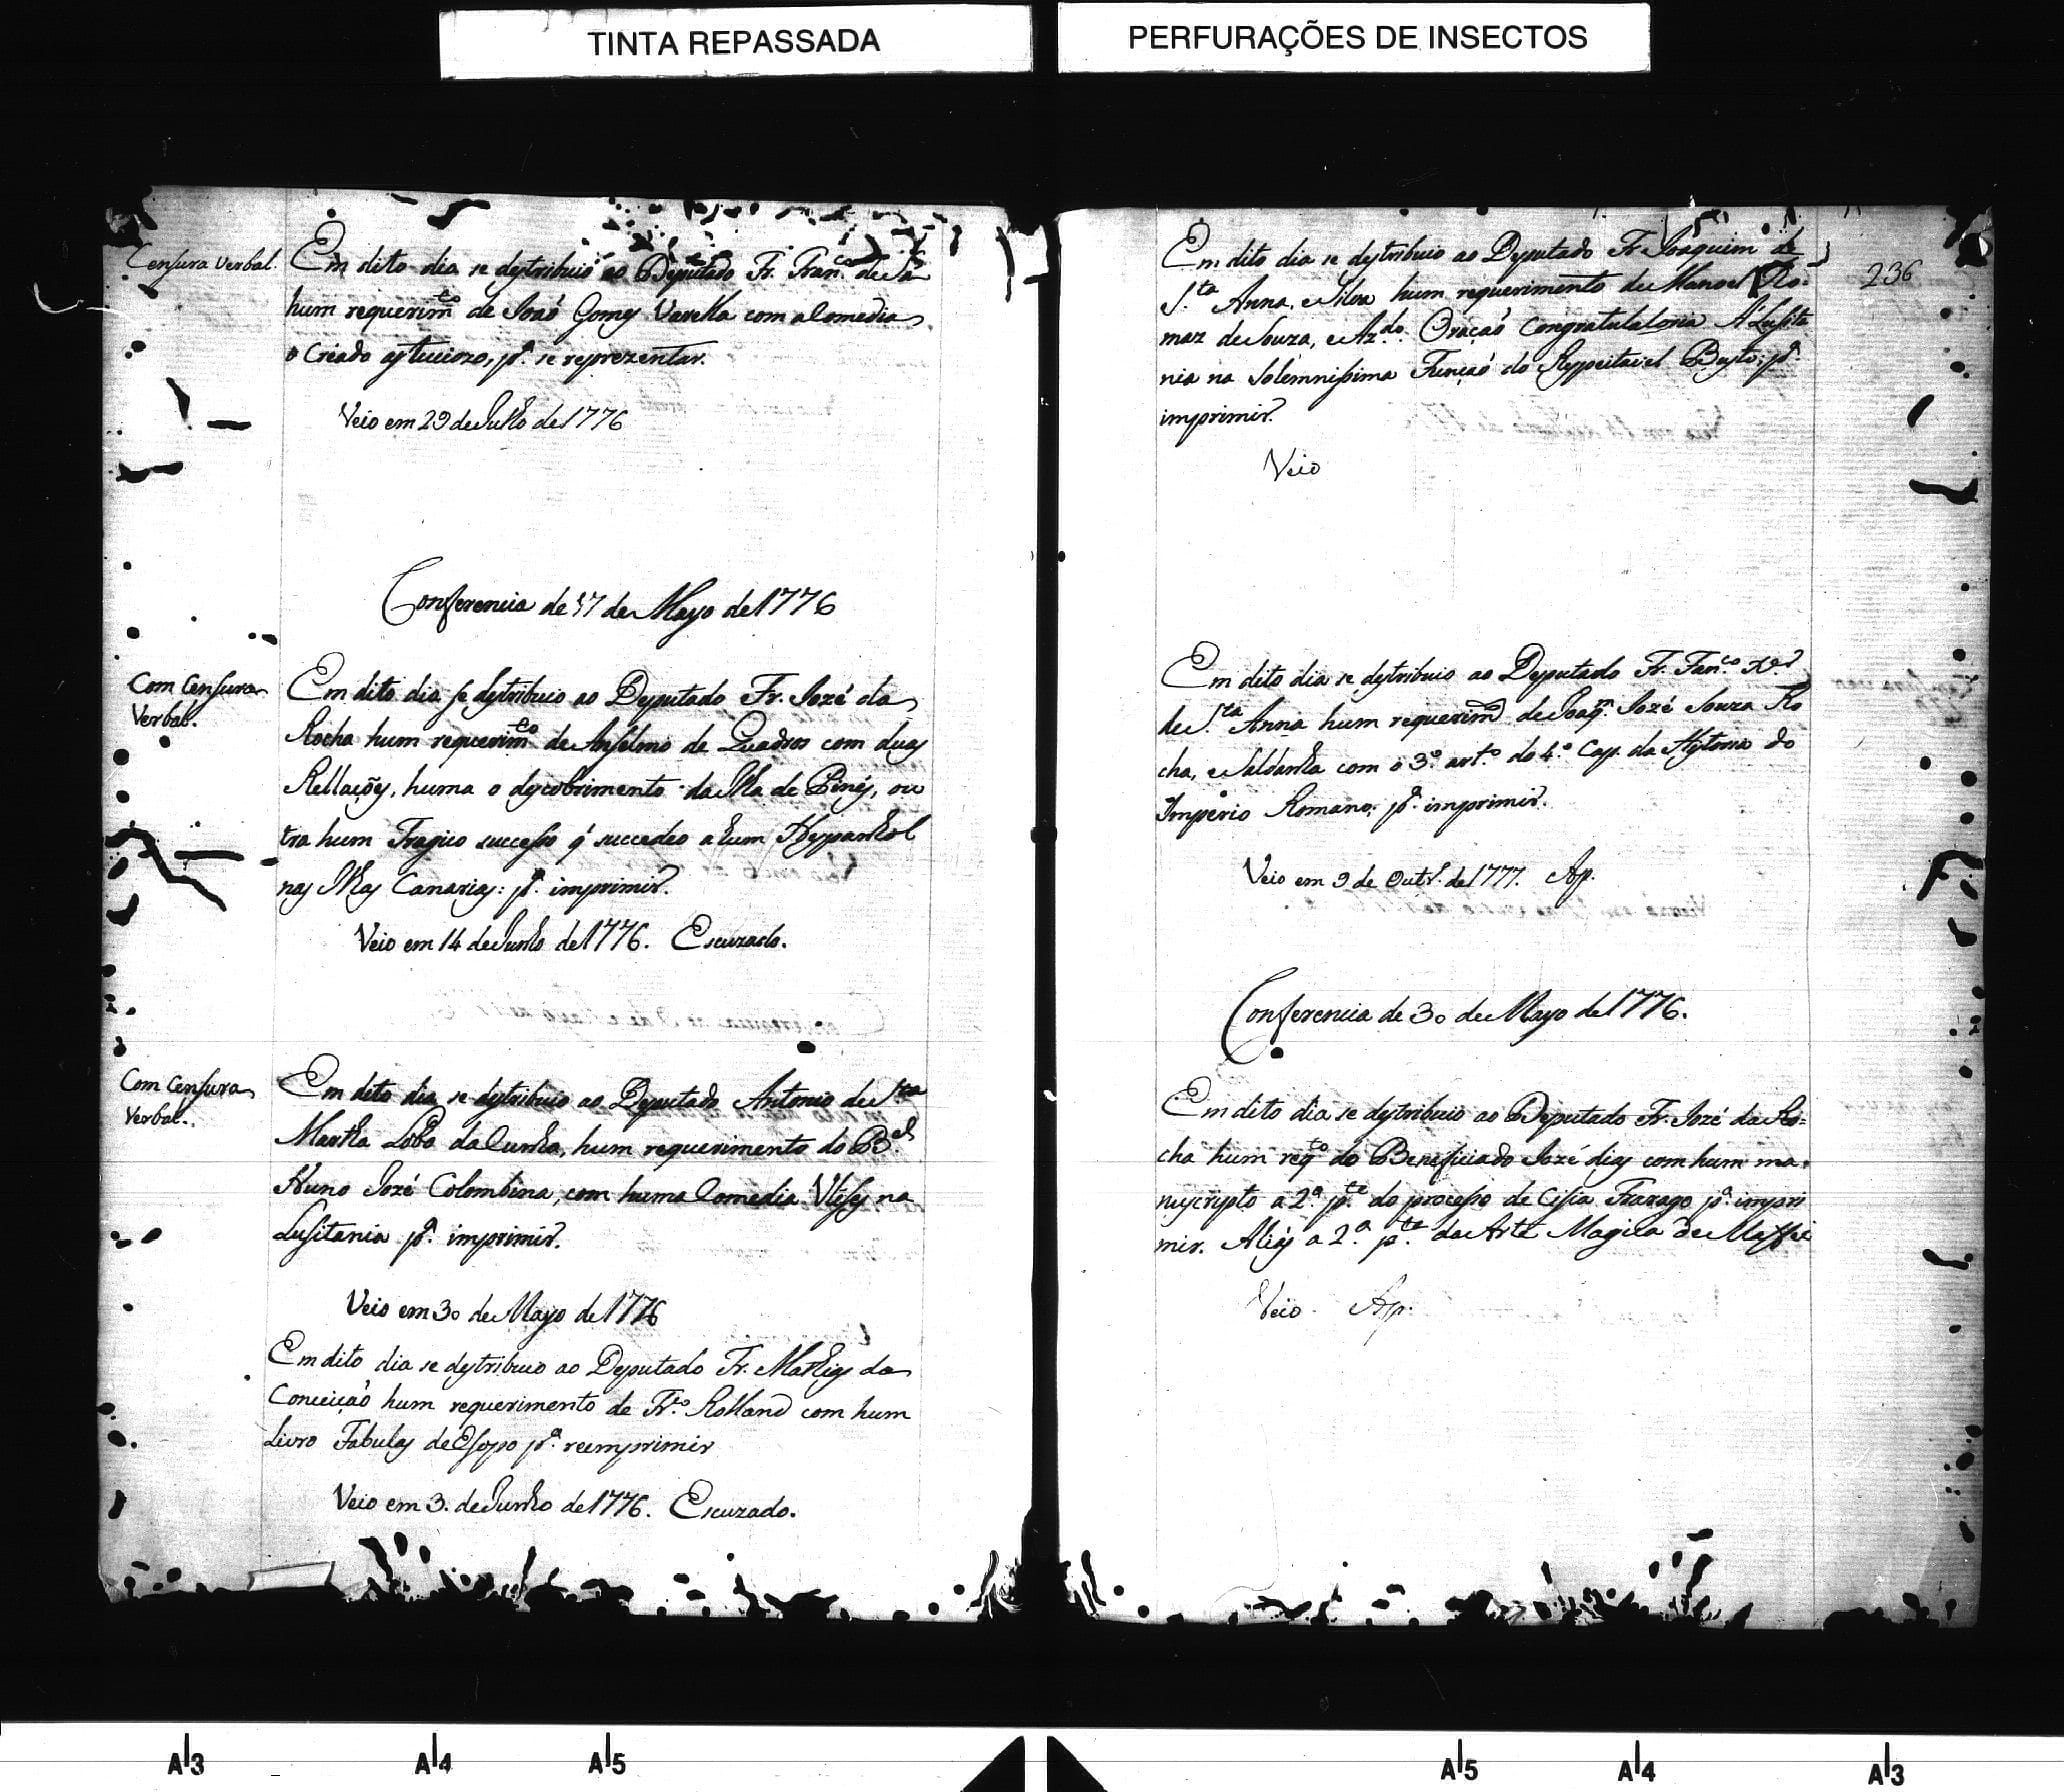 TINTA REPASSADA
Censura Verbal.
Em dito dia se destribuio ao Deputado Fr. Fran.co de Sá
hum requerim.to de João Gomes Varella com a Comedia
o Creado astucioso, p.a se reprezentar.
Veio em 29 de Julho de 1776
Conferencia de 17 de Mayo de 1776
Com Censura
Verbal.
Em dito dia se destribuio ao Deputado Fr. Jozé da
Rocha hum requerim.to de Anselmo de Quadros com duas
Rellações, huma o descobrimento da Ilha de Pinés, ou
tra hum Tragico successo q̃ succedeo a hum Hespanhol
nas Ilhas Canarias: p.a imprimir.
Veio em 14 de Junho de 1776. Escuzado.
Com Censura
Verbal.
Em dito dia se destribuio ao Deputado Antonio de S.ta
Martha Lobo da Cunha, hum requerimento do B.el
Nuno Jozé Colombina, com huma Comedia Ulises na
Lusitania p.a imprimir.
Veio em 30 de Mayo de 1776
Em dito dia se destribuio ao Deputado Fr. Mathias da
Conceição hum requerimento de Fr.co Rolland com hum
Livro Fabulas de Esopo p.a reemprimir
Veio em 3. de Junho de 1776. Escuzado.
PERFURAÇÕES DE INSECTOS
236
Em dito dia se destribuio ao Deputado Fr. Joaquim de
S.ta Anna, e Silva hum requerimento de Manoel
maz de Souza, e Az.do. Oração Congratulatoria Á Lusita
nia na Solemnissima Função do Respeitavel Busto: p.a
imprimir.
Veio
Em dito dia se destribuio ao Deputado Fr. Fran.co X.er
de S.ta Anna hum requerim.to de Joaq.m Jozé Souza Ro
cha, e Saldanha com o 3.o art.o do 4.o Cap. da Hystoria do
Imperio Romano; p.a imprimir.
Veio em 9 de Outr.o de 1777. Ap.
Conferencia de 30 de Mayo de 1776.
Em dito dia se destribuio ao Deputado Fr. Jozé da Ro=
cha hum req.to do Beneficiado Jozé dias com hum ma=
nuscripto a 2.a p.te do processo de p.a impri
mir. Aliás a 2.a p.te da Arte Magica de Maffei
Veio. Ap.
A3
A4
A5
A5
A4
A3